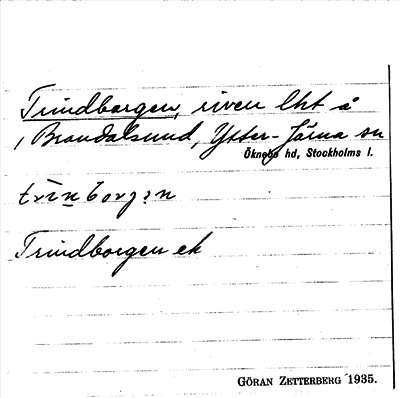 Trindborgen, riven lht å
, Brandalsund, Ytter-Järna sn
Öknebo hd, Stockholms l.
trinborgən
Trindborgen ek
GÖRAN ZETTERBERG 1935.